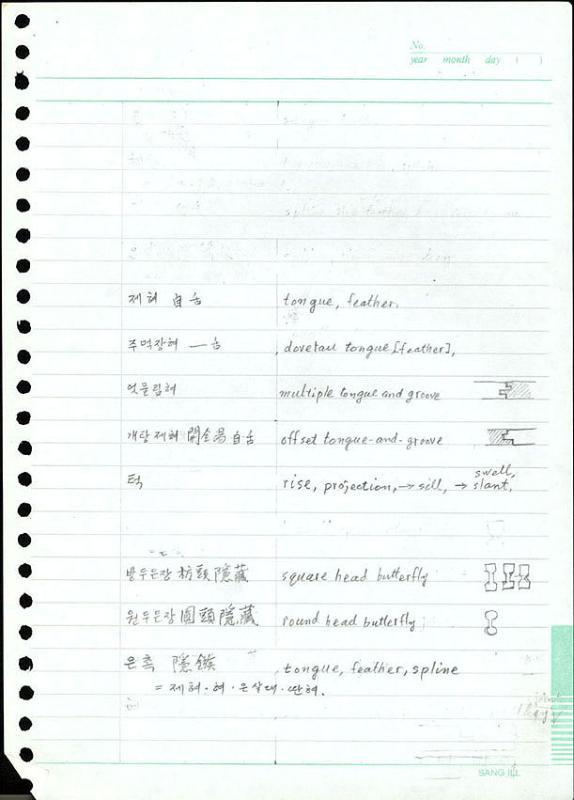 No.
year month day ( )
제혀 自舌 tongue, feather.
주먹장혀 —舌 , dovetail tongue [feather],
엇물림혀 multiple tongue and groove
개탕제혀 開金湯自舌 offset tongue-and-groove
턱 rise, projection, → sill, → swell, slant,
방두은장 枋頭隱藏 square head butterfly
원두은장 圓頭隱藏 round head butterfly
은촉 隱鏃 tongue, feather, spline
= 제혀 · 혀 · 은살대 · 딴혀.
SANG ILL